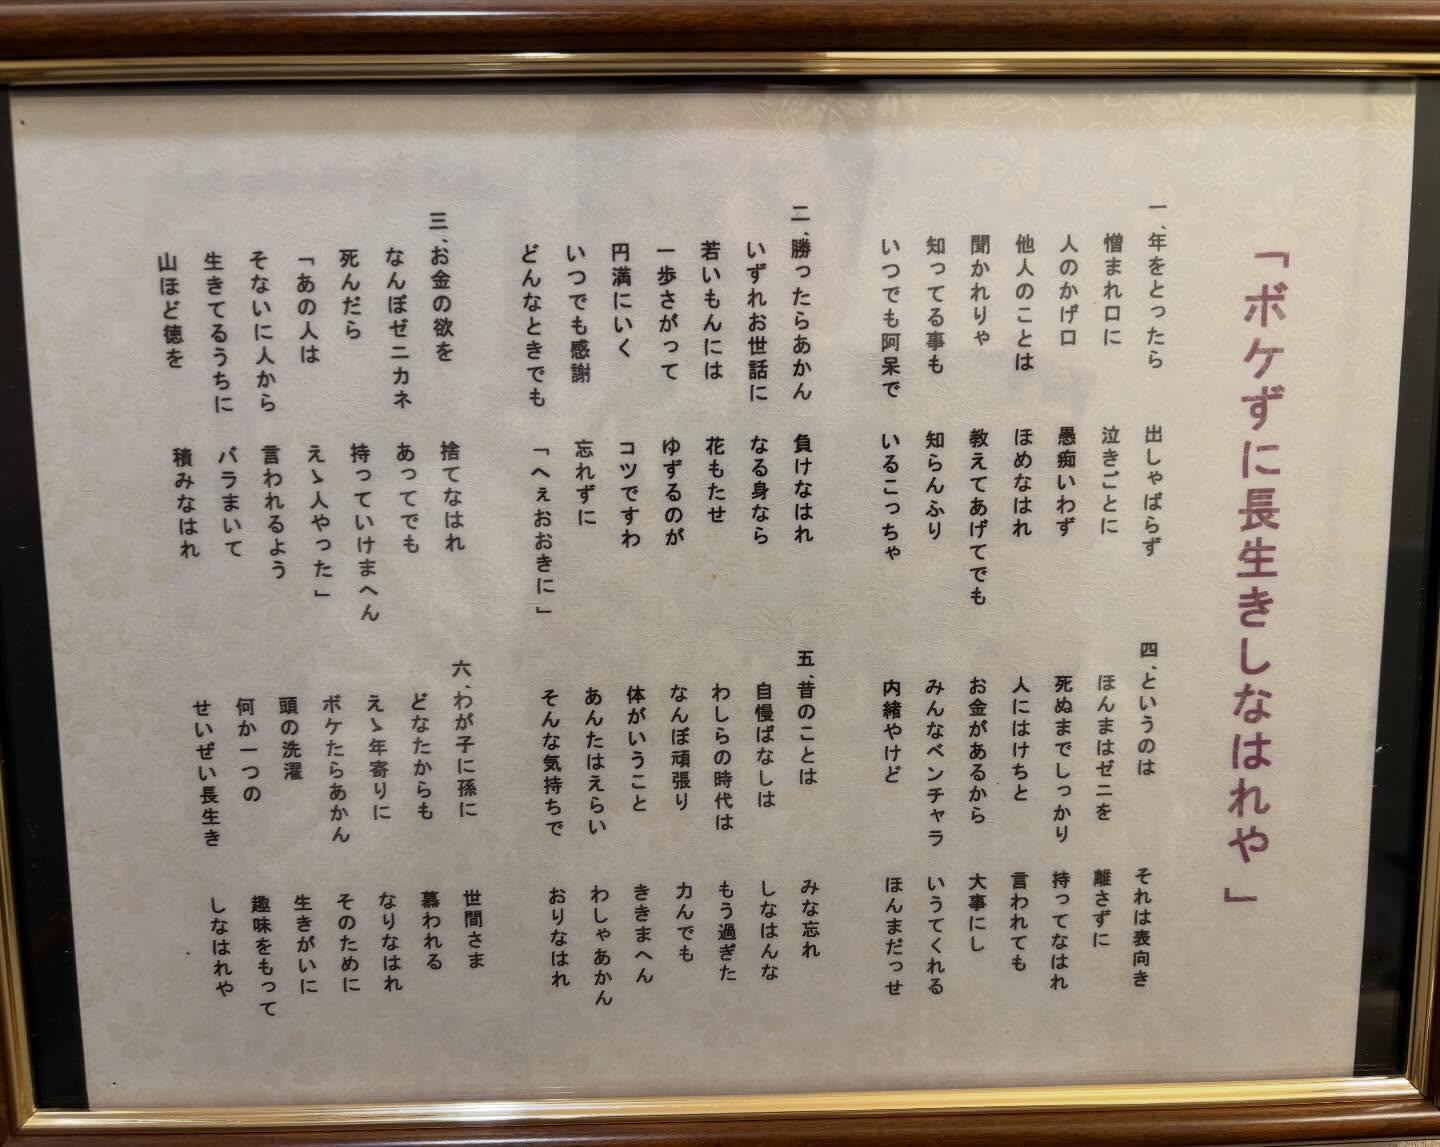 「ボケずに長生きしなはれや」
一、年をとったら 出しゃばらず
憎まれ口に 泣きごとに
人のかげ口 愚痴いわず
他人のことは ほめなはれ
聞かれりゃ 教えてあげてでも
知ってる事も 知らんふり
いつでも阿呆で いるこっちゃ
二、勝ったらあかん 負けなはれ
いずれお世話に なる身なら
若いもんには 花もたせ
一歩さがって ゆずるのが
円満にいく コツですわ
いつでも感謝 忘れずに
どんなときでも 「へぇおおきに」
三、お金の欲を 捨てなはれ
なんぼゼニカネ あってでも
死んだら 持っていけまへん
「あの人は えゝ人やった」
そないに人から 言われるよう
生きてるうちに バラまいて
山ほど徳を 積みなはれ
四、というのは それは表向き
ほんまはゼニを 離さずに
死ぬまでしっかり 持ってなはれ
人にはけちと 言われても
お金があるから 大事にし
みんなベンチャラ いうてくれる
内緒やけど ほんまだっせ
五、昔のことは みな忘れ
自慢ばなしは しなはんな
わしらの時代は もう過ぎた
なんぼ頑張り 力んでも
体がいうこと ききまへん
あんたはえらい わしゃあかん
そんな気持ちで おりなはれ
六、わが子に孫に 世間さま
どなたからも 慕われる
えゝ年寄りに なりなはれ
ボケたらあかん そのために
頭の洗濯 生きがいに
何か一つの 趣味をもって
せいぜい長生き しなはれや